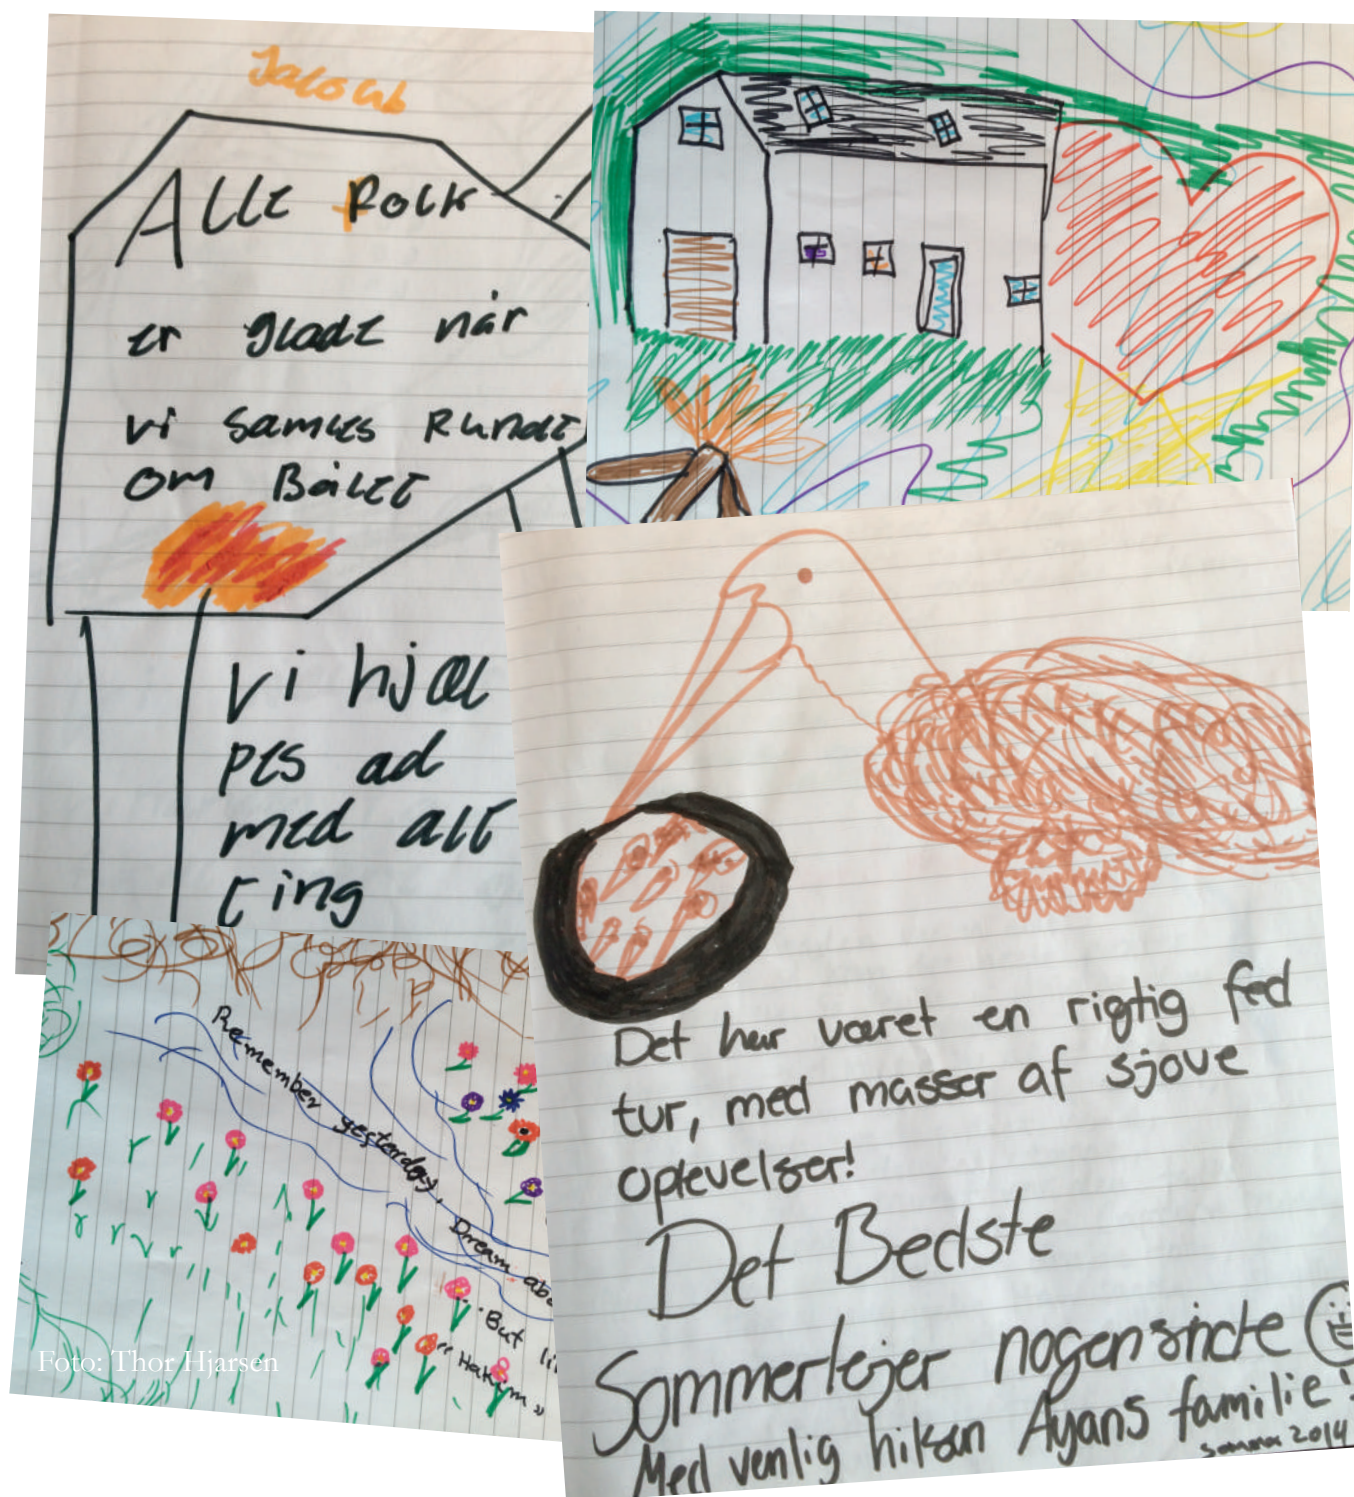 Jacob
Alle Folk
er glade når
vi samles Rundt
om Bålet
vi hjæl
pes ad
med alt
ting
Remember yesterday,
Dream abo
...But li
"Hakim"
Det har været en rigtig fed
tur, med masser af sjove
oplevelser!
Det Bedste
Sommerlejer nogensinde
Med venlig hilsen Ayans familie!
Sommer 2014
Foto: Thor Hjarsen